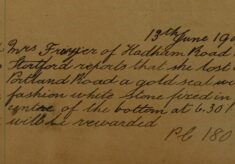 13th June 190
Mrs Frazer of Hadham Road
Stortford reports that she lost
Portland Road a gold seal
fashion white stone fixed in
centre of the bottom at 6.30
will be rewarded
PC 180